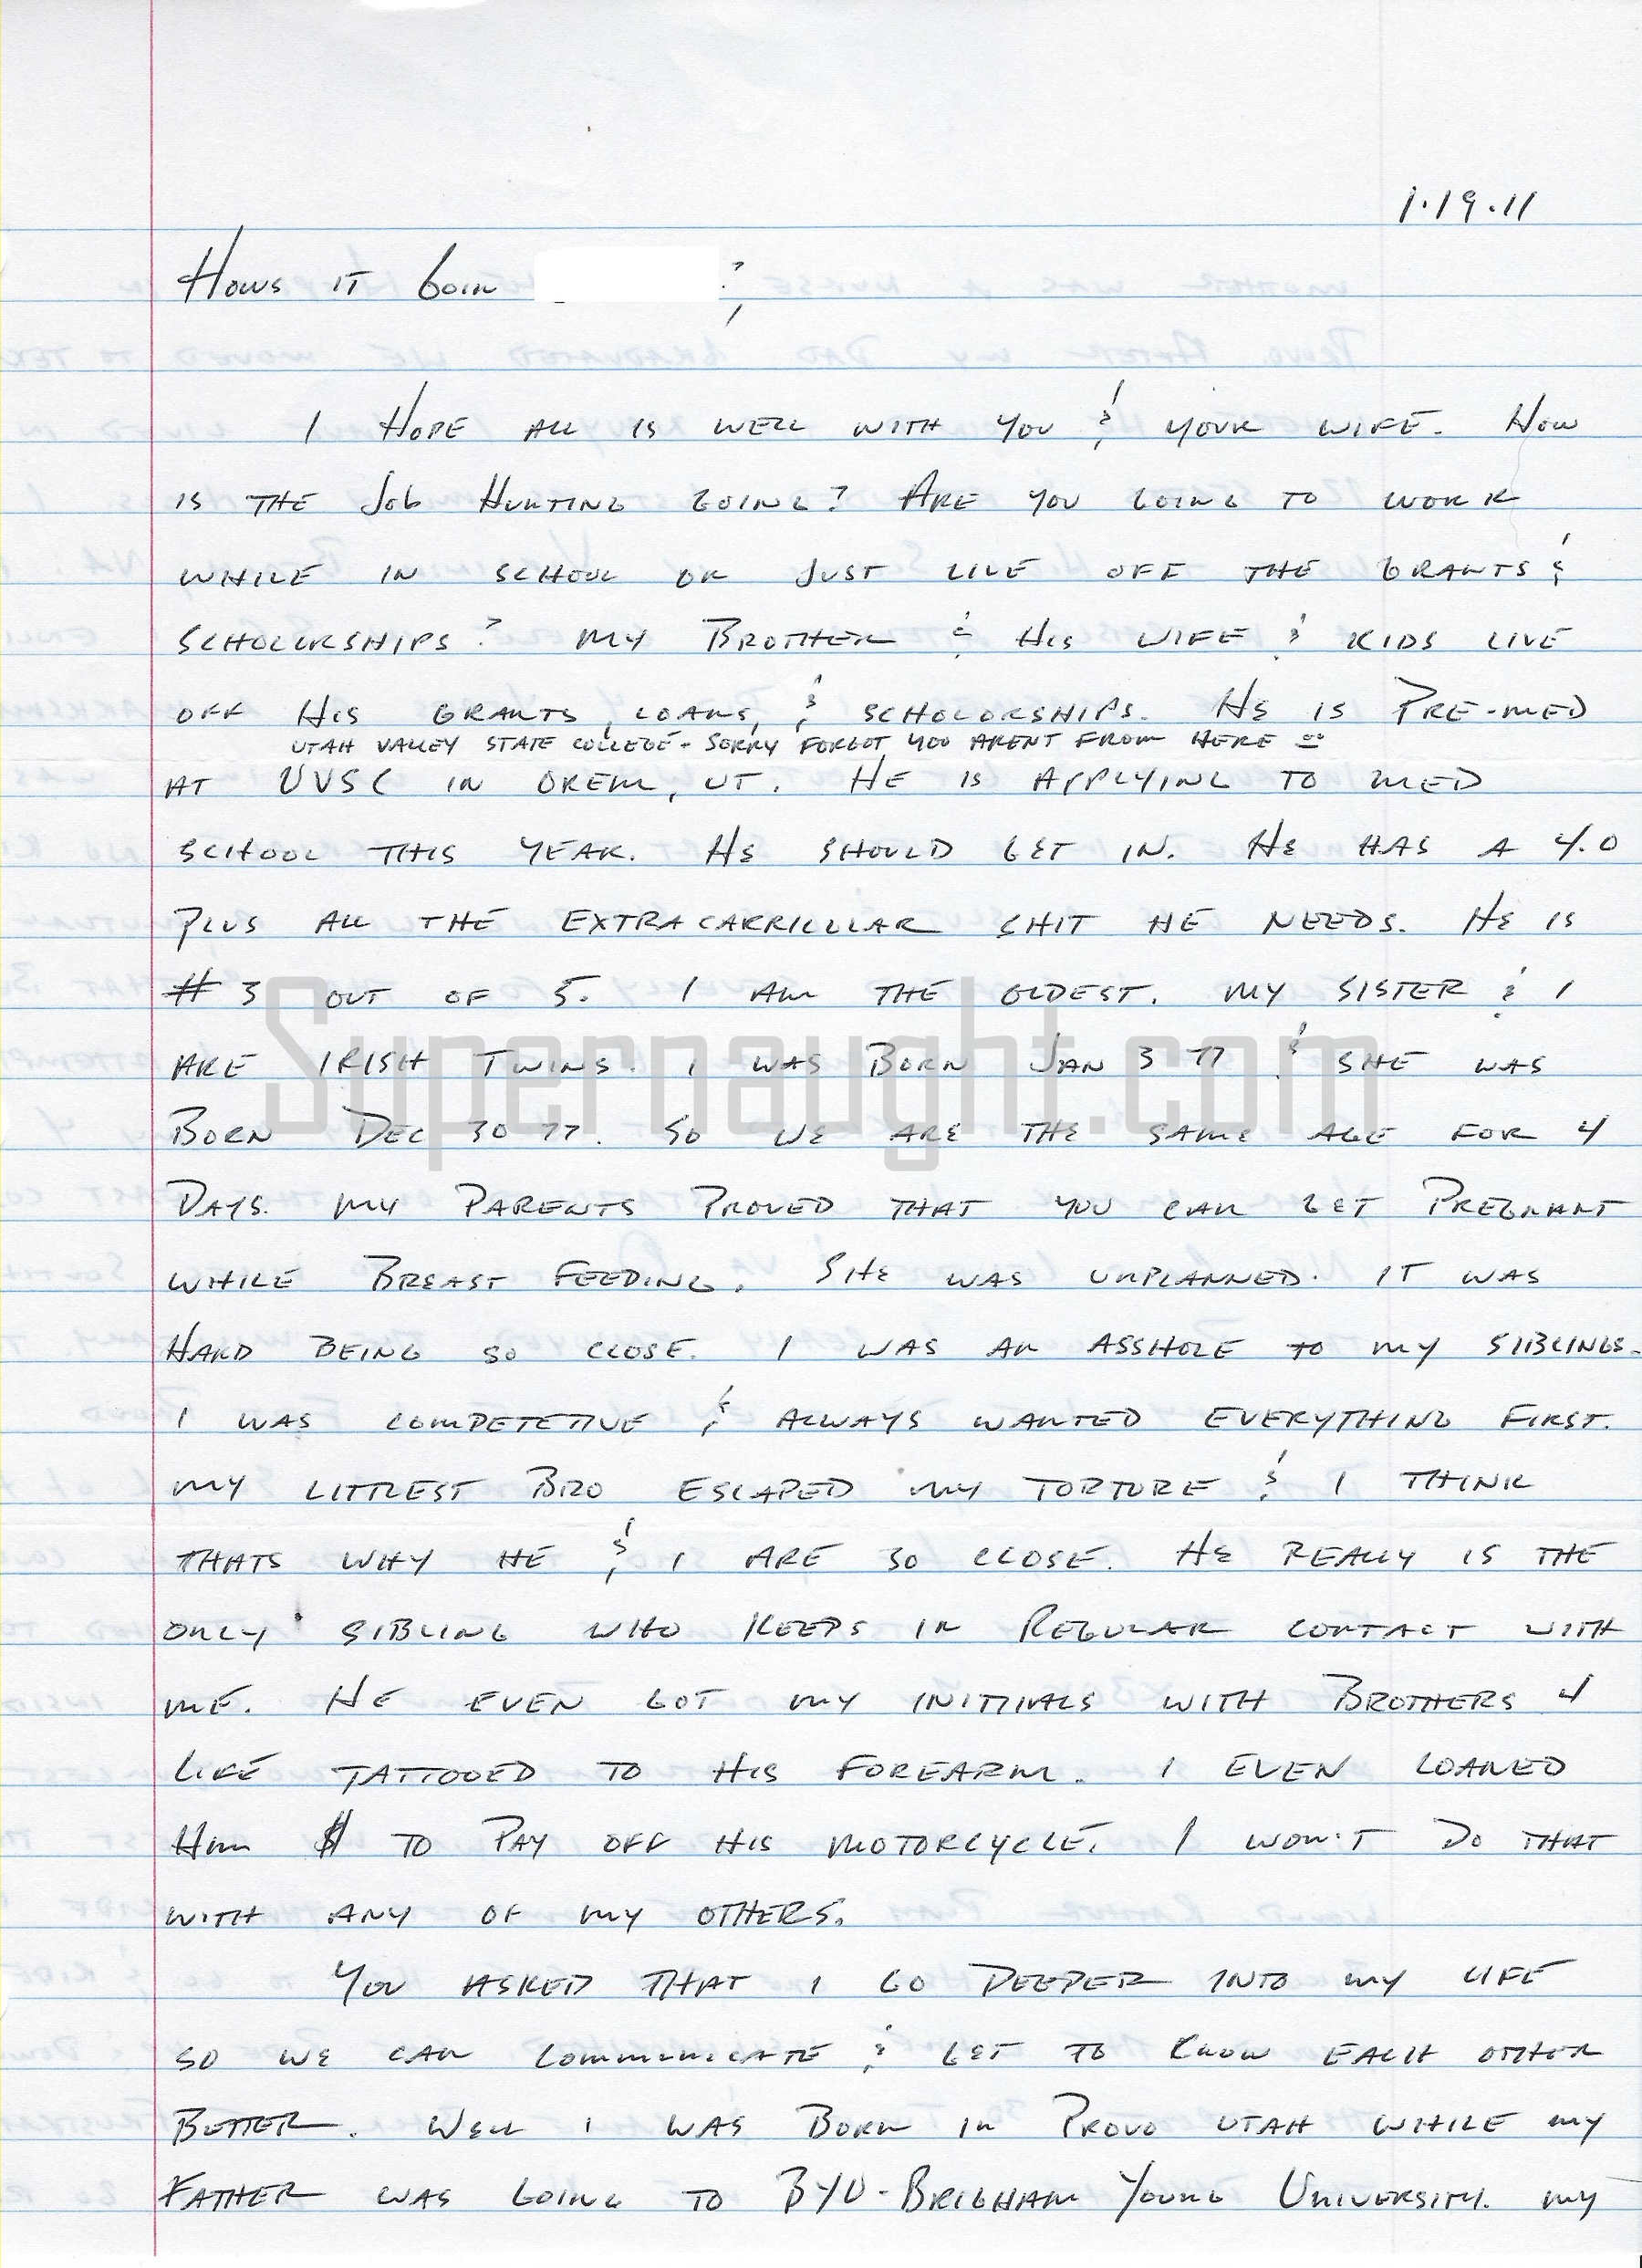 1.19.11
Hows it Goin ?,
I Hope all is well with you & your wife. How
is the Job Hunting going? Are you going to work
while in school or just live off the grants &
scholorships? My Brother & His wife & kids live
off His grants, loans, & scholorships. He is Pre-med
Utah Valley State College - Sorry forgot you arent from here
at UVSC in Orem, UT. He is applying to med
school this year. He should get in. He has a 4.0
Plus all the extracarricular shit he needs. He is
#3 out of 5. I am the oldest. My sister & I
are Irish Twins. I was Born Jan 3 77 & she was
Born Dec 30 77. So we are the same age for 4
Days. My Parents Proved that you can get Pregnant
while Breast Feeding. She was unplanned. It was
Hard being so close. I was an asshole to my siiblings.
I was competetive & always wanted everything first.
My littlest Bro escaped my torture & I think
thats why he & I are so close. He really is the
only sibling who keeps in Regular contact with
me. He even got my initials with Brothers 4
Life tattooed to His forearm. I even loaned
Him $ to Pay off His motorcycle. I won't Do that
with any of my others.
You asked that I go Deeper into my life
so we can communicate & get to know each other
Better. Well I was Born in Provo Utah while my
Father was going to BYU - Brigham Young University. My
Supernaught.com